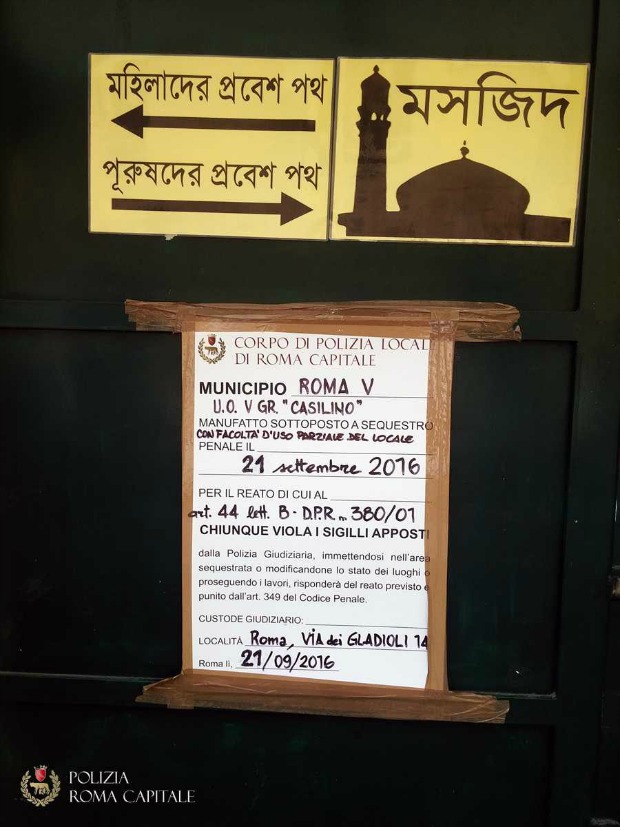 মহিলাদের প্রবেশ পথ
পূরুষদের প্রবেশ পথ
মসজিদ
CORPO DI POLIZIA LOCAL
DI ROMA CAPITALE
MUNICIPIO ROMA V
U.O. V GR. "CASILINO"
MANUFATTO SOTTOPOSTO A SEQUESTRO
CON FACOLTA' D'USO PARZIALE DEL LOCALE
PENALE IL
21 settembre 2016
PER IL REATO DI CUI AL
art. 44 lett. B - D.P.R. n. 380/01
CHIUNQUE VIOLA I SIGILLI APPOSTI
dalla Polizia Giudiziaria, immettendosi nell'area
sequestrata o modificandone lo stato dei luoghi o
proseguendo i lavori, risponderà del reato previsto e
punito dall'art. 349 del Codice Penale.
CUSTODE GIUDIZIARIO:
LOCALITÀ Roma, VIA dei GLADIOLI 14
Roma lì, 21/09/2016
POLIZIA
ROMA CAPITALE